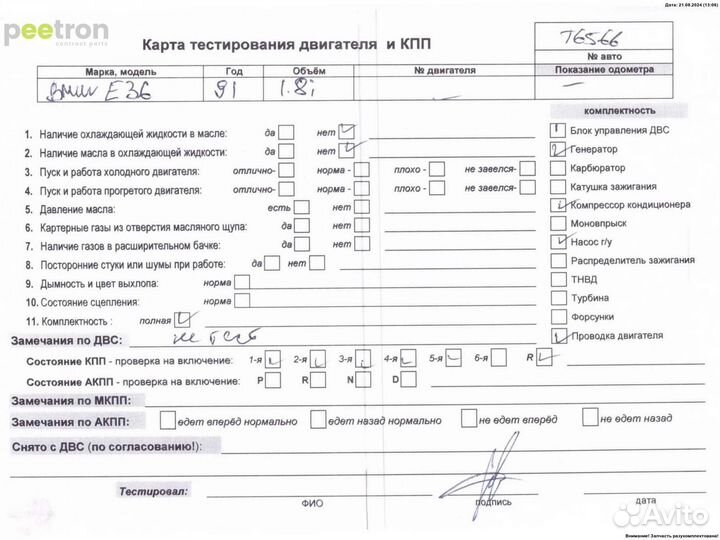 Дата: 21.08.2024 (13:06)
peetron
contract parts
Карта тестирования двигателя и КПП
T6566
№ авто
Марка, модель Год Объём № двигателя Показание одометра
BMW E36 91 1.8i – –
комплектность
1. Наличие охлаждающей жидкости в масле: да нет Блок управления ДВС
2. Наличие масла в охлаждающей жидкости: да нет Генератор
3. Пуск и работа холодного двигателя: отлично- норма - плохо - не завелся- Карбюратор
4. Пуск и работа прогретого двигателя: отлично- норма - плохо - не завелся- Катушка зажигания
5. Давление масла: есть нет Компрессор кондиционера
6. Картерные газы из отверстия масляного щупа: да нет Моновпрыск
7. Наличие газов в расширительном бачке: да нет Насос г/у
8. Посторонние стуки или шумы при работе: да нет Распределитель зажигания
9. Дымность и цвет выхлопа: норма ТНВД
10. Состояние сцепления: норма Турбина
11. Комплектность : полная Форсунки
Замечания по ДВС: не тест Проводка двигателя
Состояние КПП - проверка на включение: 1-я 2-я 3-я 4-я 5-я 6-я R
Состояние АКПП - проверка на включение: P R N D
Замечания по МКПП:
Замечания по АКПП: едет вперёд нормально едет назад нормально не едет вперёд не едет назад
Снято с ДВС (по согласованию!):
Тестировал:
ФИО подпись дата
Avito
Внимание! Запчасть разукомплектована!